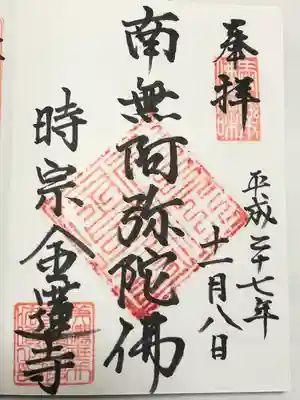 奉拝
平成二十七年
十一月八日
南無阿弥陀佛
時宗 金蓮寺